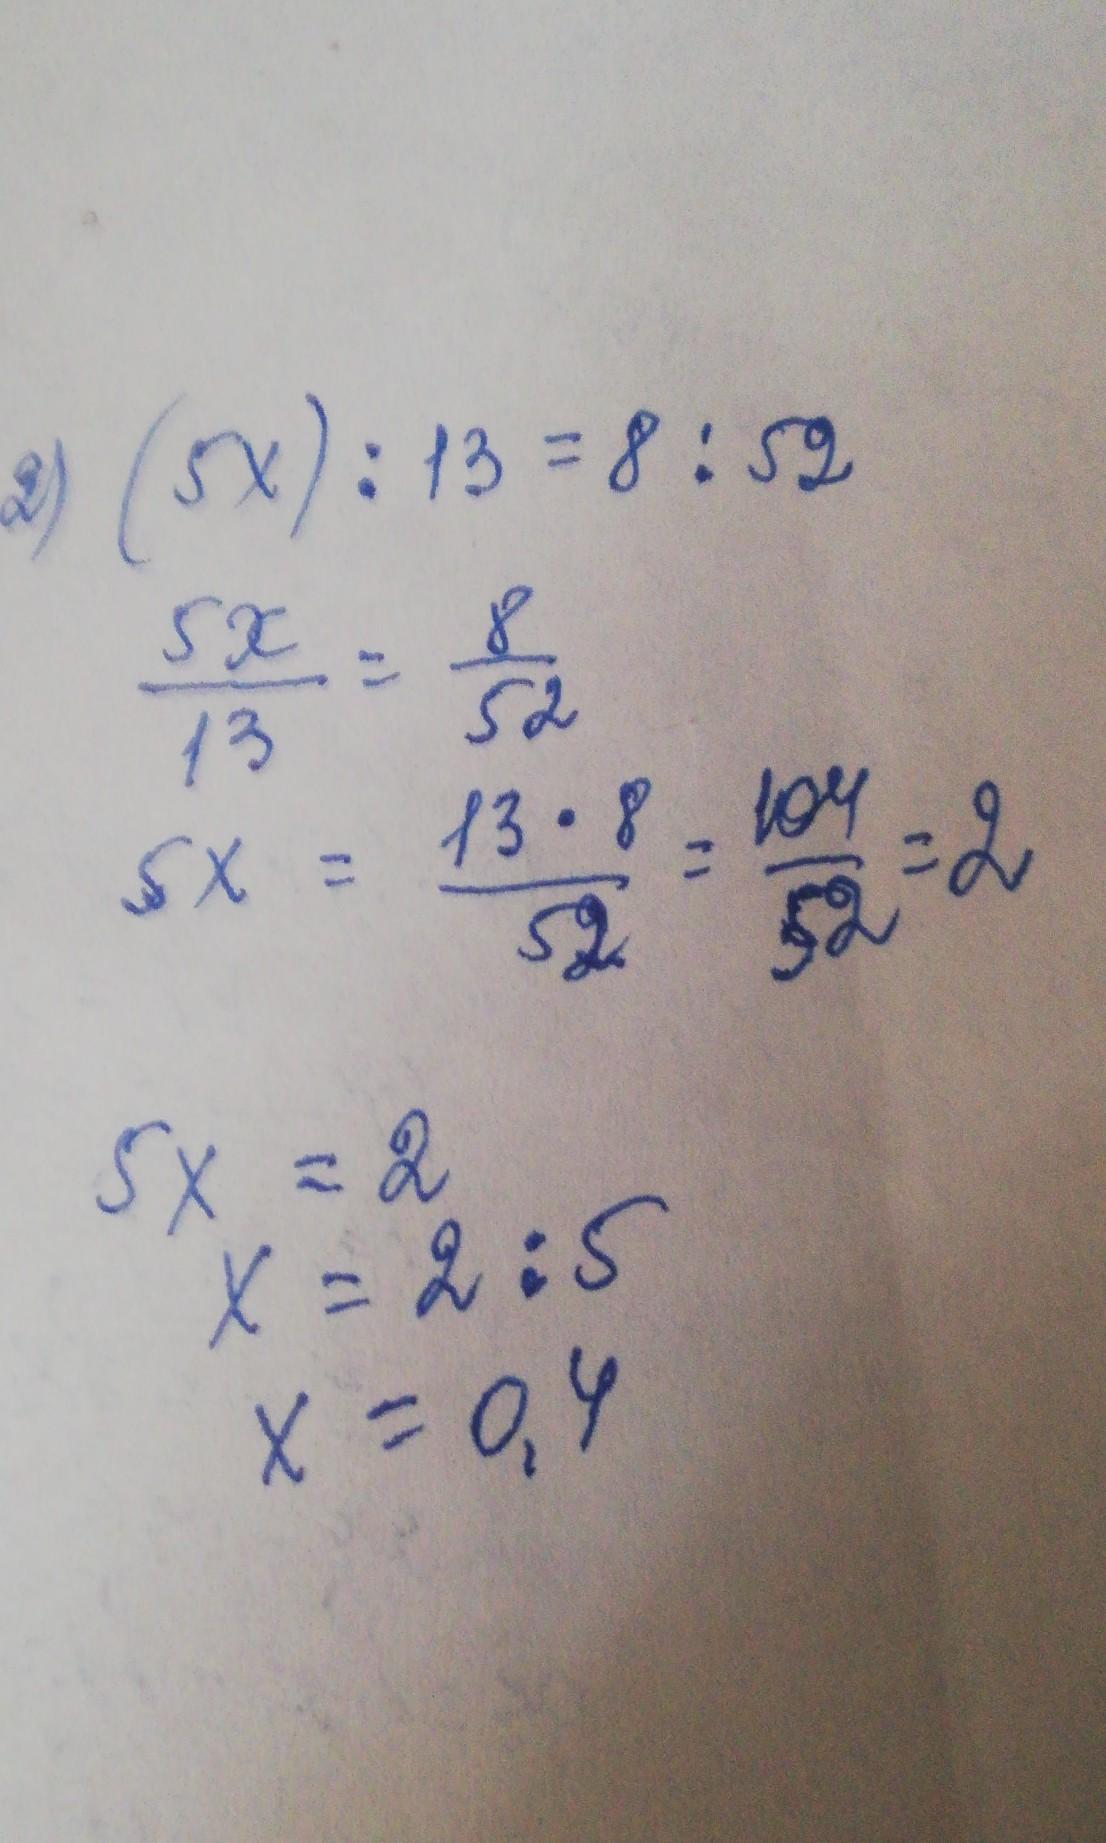 2) (5x) : 13 = 8 : 52
5x/13 = 8/52
5x = 13 · 8/52 = 104/52 = 2
5x = 2
x = 2 : 5
x = 0,4